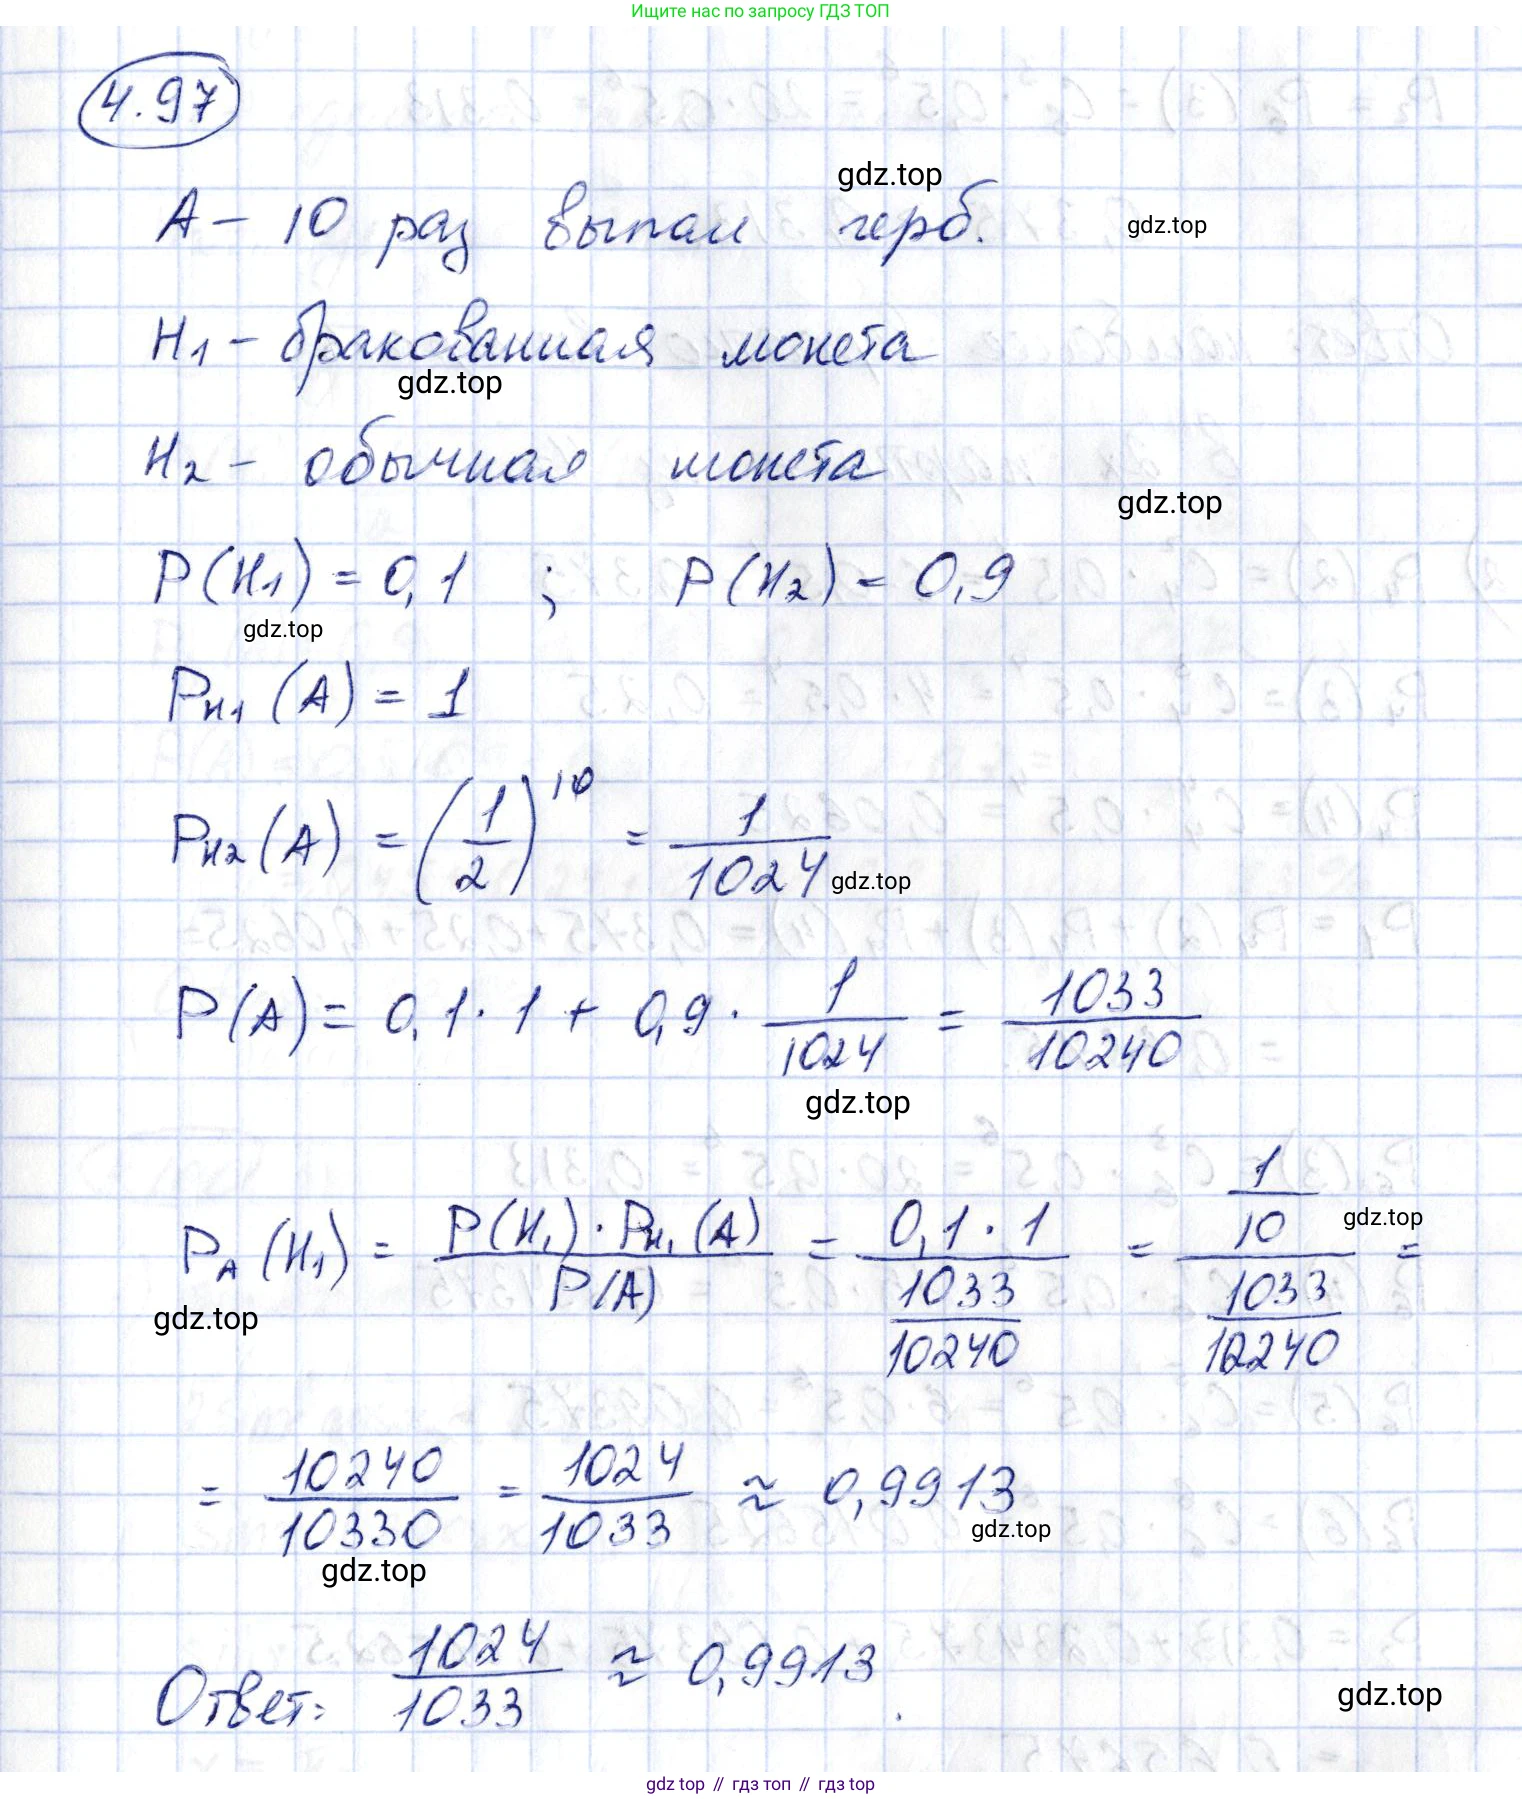 Ищите нас по запросу ГДЗ ТОП
4.97
gdz.top
A - 10 раз выпал герб.
gdz.top
H1 - бракованная монета
gdz.top
H2 - обычная монета
gdz.top
P(H1) = 0,1 ; P(H2) = 0,9
gdz.top
P_H1 (A) = 1
P_H2 (A) = (1/2)^10 = 1/1024
gdz.top
P(A) = 0,1 · 1 + 0,9 · 1/1024 = 1033/10240
gdz.top
P_A (H1) = P(H1) · P_H1 (A) / P(A) = 0,1 · 1 / (1033/10240) = (1/10) / (1033/10240) =
gdz.top
gdz.top
= 10240/10330 = 1024/1033 ≈ 0,9913
gdz.top
gdz.top
Ответ: 1024/1033 ≈ 0,9913.
gdz.top
gdz top // гдз топ // гдз top